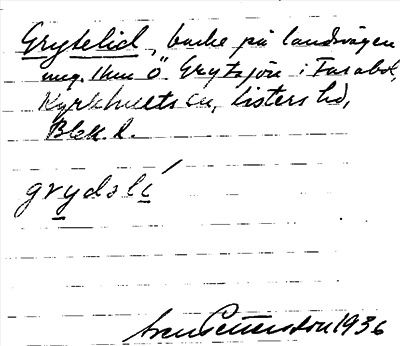 Grytelid, backe på landsvägen
ung. 1 km Ö Grytsjön i Farabol,
Kyrkhults sn, Listers hd,
Blek. l.
grydəlí
Sven Pettersson 1936